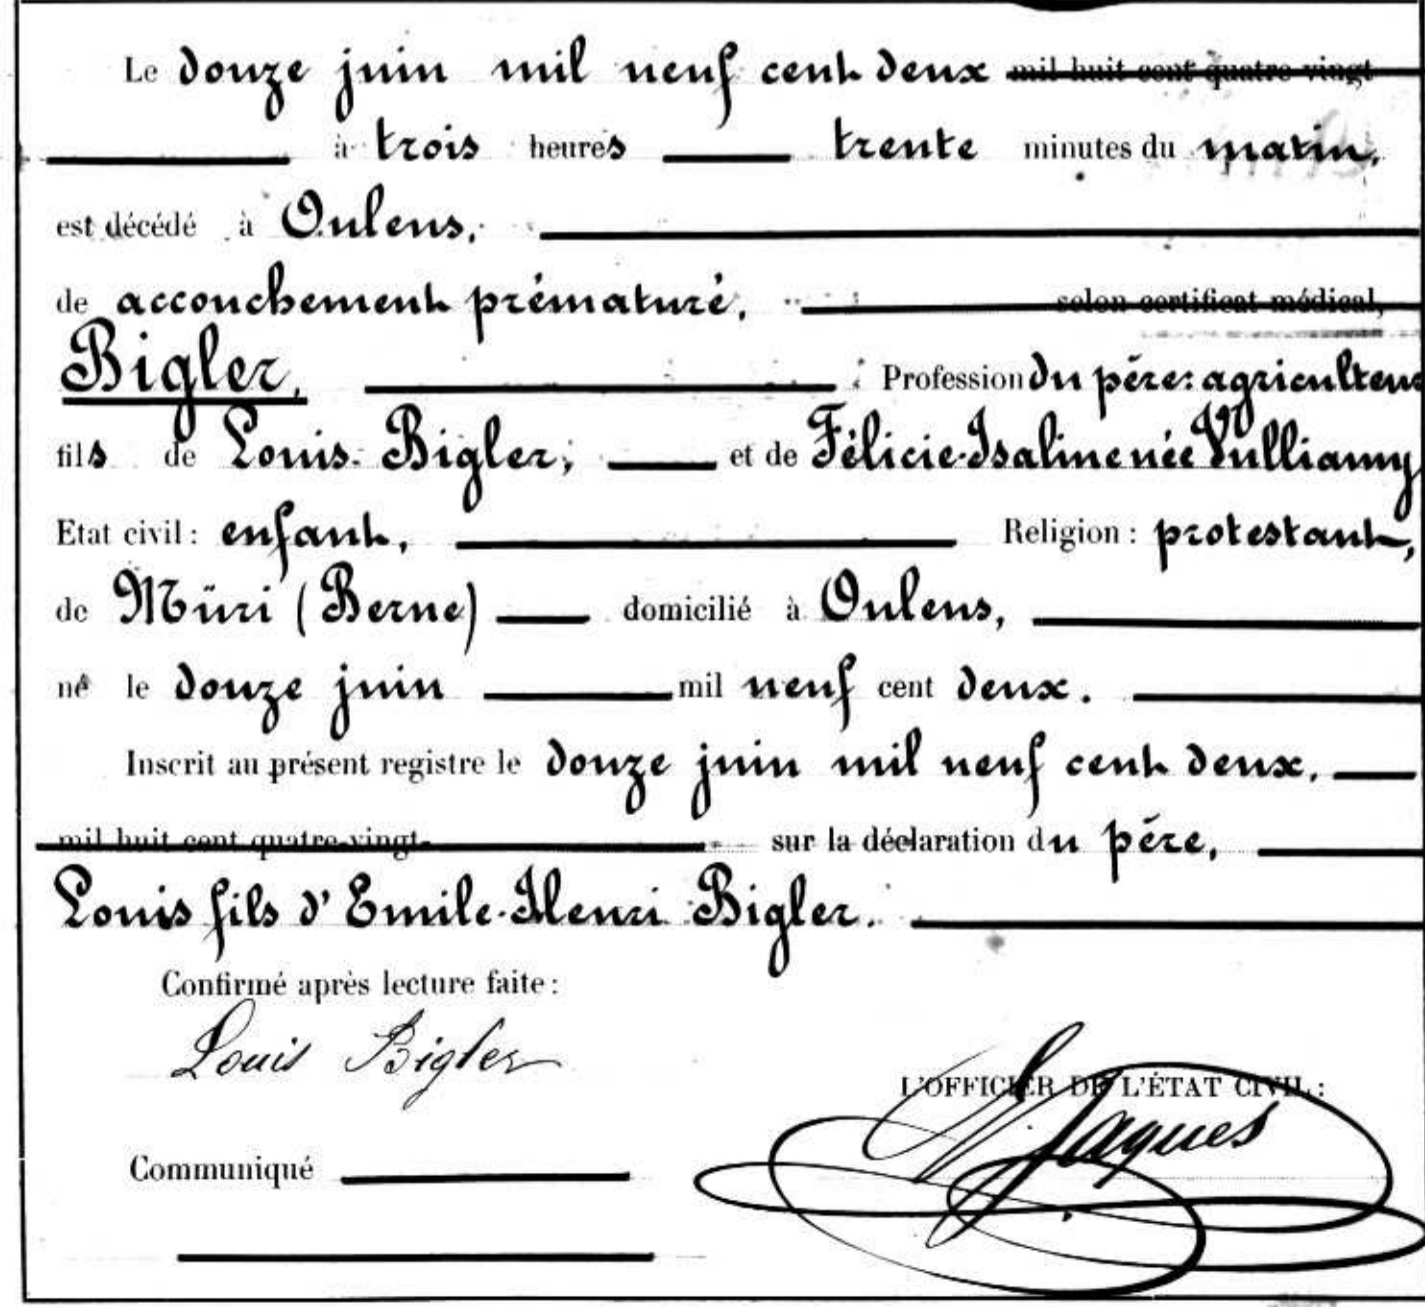 Le douze juin mil neuf cent deux mil huit cent quatre-vingt
à trois heures trente minutes du matin,
est décédé à Oulens,
de accouchement prématuré, selon certificat médical,
Bigler, Profession du père: agriculteur
fils de Louis Bigler, et de Félicie-Isaline née Vulliamy
Etat civil: enfant, Religion: protestant,
de Müri (Berne) domicilié à Oulens,
né le douze juin mil neuf cent deux.
Inscrit au présent registre le douze juin mil neuf cent deux,
mil huit cent quatre-vingt- sur la déclaration du père,
Louis fils d'Emile-Henri Bigler.
Confirmé après lecture faite:
Louis Bigler
L'OFFICIER DE L'ÉTAT CIVIL:
Jaques
Communiqué